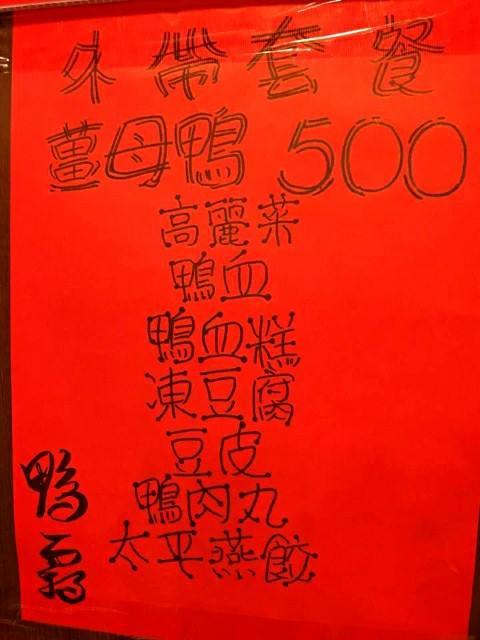 外帶套餐
薑母鴨 500
高麗菜
鴨血
鴨血糕
凍豆腐
豆皮
鴨肉丸
太平燕餃
鴨霸